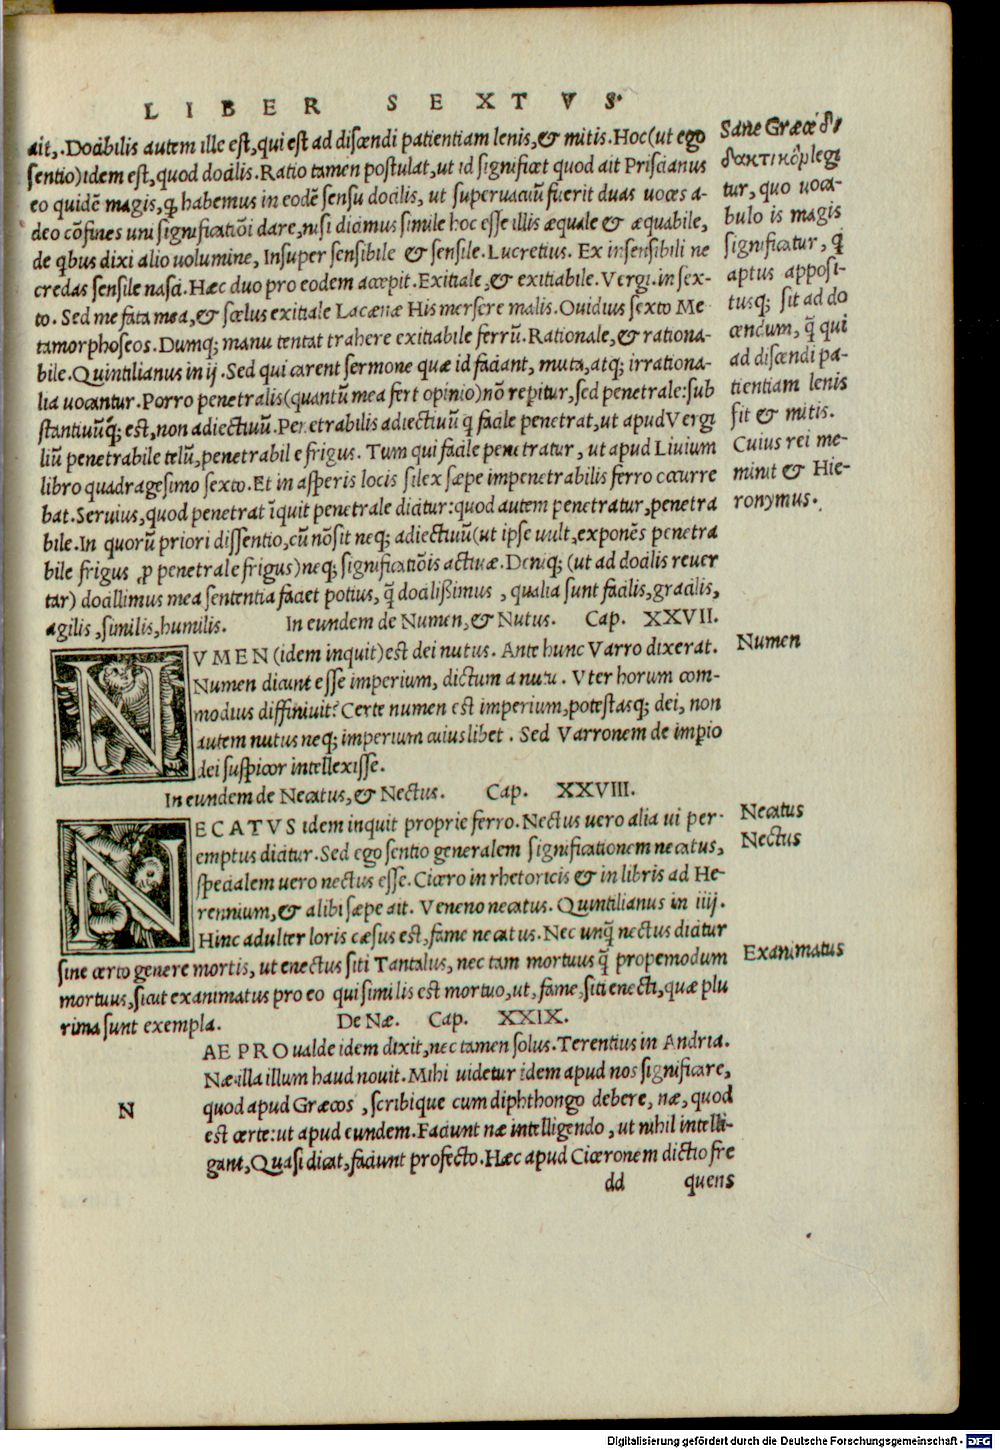 LIBER SEXTVS.
ait,. Docibilis autem ille est, qui est ad discendi patientiam lenis, & mitis. Hoc (ut ego
sentio) idem est, quod docilis. Ratio tamen postulat, ut id significet quod ait Priscianus
eo quidē magis, q̨ habemus in eodē sensu docilis, ut superuacuū fuerit duas uoces a-
deo cōfines uni significatiōi dare, nisi dicimus simile hoc esse illis æquale & æquabile,
de qbus dixi alio uolumine, Insuper sensibile & sensile. Lucretius. Ex insensibili ne
credas sensile nasci. Hæc duo pro eodem accepit. Exitiale, & exitiabile. Vergi. in sex-
to. Sed me fata mea, & scelus exitiale Lacænæ His mersere malis. Ouidius sexto Me
tamorphoseos. Dumq; manu tentat trahere exitiabile ferrū. Rationale, & rationa-
bile. Quintilianus in ij. Sed qui carent sermone quæ id faciant, muta, atq; irrationa-
lia uocantur. Porro penetralis (quantū mea fert opinio) nō repitur, sed penetrale: sub
stantiuūq; est, non adiectiuū. Penetrabilis adiectiuū q facile penetrat, ut apud Vergi
liū penetrabile telū, penetrabile frigus. Tum qui facile penetratur, ut apud Liuium
libro quadragesimo sexto. Et in asperis locis silex sæpe impenetrabilis ferro occurre
bat. Seruius, quod penetrat īquit penetrale dicitur: quod autem penetratur, penetra
bile. In quorū priori dissentio, cū nō sit neq; adiectiuū (ut ipse uult, exponēs penetra
bile frigus ꝓ penetrale frigus) neq; significatiōis actiuæ. Deniq; (ut ad docilis reuer
tar) docillimus mea sententia faciet potius, q̄ docilißimus, qualia sunt facilis, gracilis,
agilis, similis, humilis. In eundem de Numen, & Nutus. Cap. XXVII.
NVMEN (idem inquit) est dei nutus. Ante hunc Varro dixerat.
Numen dicunt esse imperium, dictum a nutu. Vter horum com-
modius diffiniuit? Certe numen est imperium, potestasq; dei, non
autem nutus neq; imperium cuiuslibet. Sed Varronem de impio
dei suspicor intellexisse.
In eundem de Necatus, & Nectus. Cap. XXVIII.
NECATVS idem inquit proprie ferro. Nectus uero alia ui per-
emptus dicitur. Sed ego sentio generalem significationem necatus,
specialem uero nectus esse. Cicero in rhetoricis & in libris ad He-
rennium, & alibi sæpe ait. Veneno necatus. Quintilianus in iiij.
Hinc adulter loris cæsus est, fame necatus. Nec unq̄ nectus dicitur
sine certo genere mortis, ut enectus siti Tantalus, nec tam mortuus q̄ propemodum
mortuus, sicut exanimatus pro eo qui similis est mortuo, ut, fame, siti enecti, quæ plu
rima sunt exempla. De Næ. Cap. XXIX.
N AE PRO ualde idem dixit, nec tamen solus. Terentius in Andria.
Næ illa illum haud nouit. Mihi uidetur idem apud nos significare,
quod apud Græcos, scribique cum diphthongo debere, næ, quod
est certe: ut apud eundem. Faciunt næ intelligendo, ut nihil intelli-
gant, Quasi dicat, faciunt profecto. Hæc apud Ciceronem dictio fre
dd quens
Sane Græce δι
δακτικὸ plegi
tur, quo uoca-
bulo is magis
significatur, q̄
aptus apposi-
tusq; sit ad do
cendum, q̄ qui
ad discendi pa-
tientiam lenis
sit & mitis.
Cuius rei me-
minit & Hie-
ronymus.
Numen
Necatus
Nectus
Exanimatus
Digitalisierung gefördert durch die Deutsche Forschungsgemeinschaft - DFG